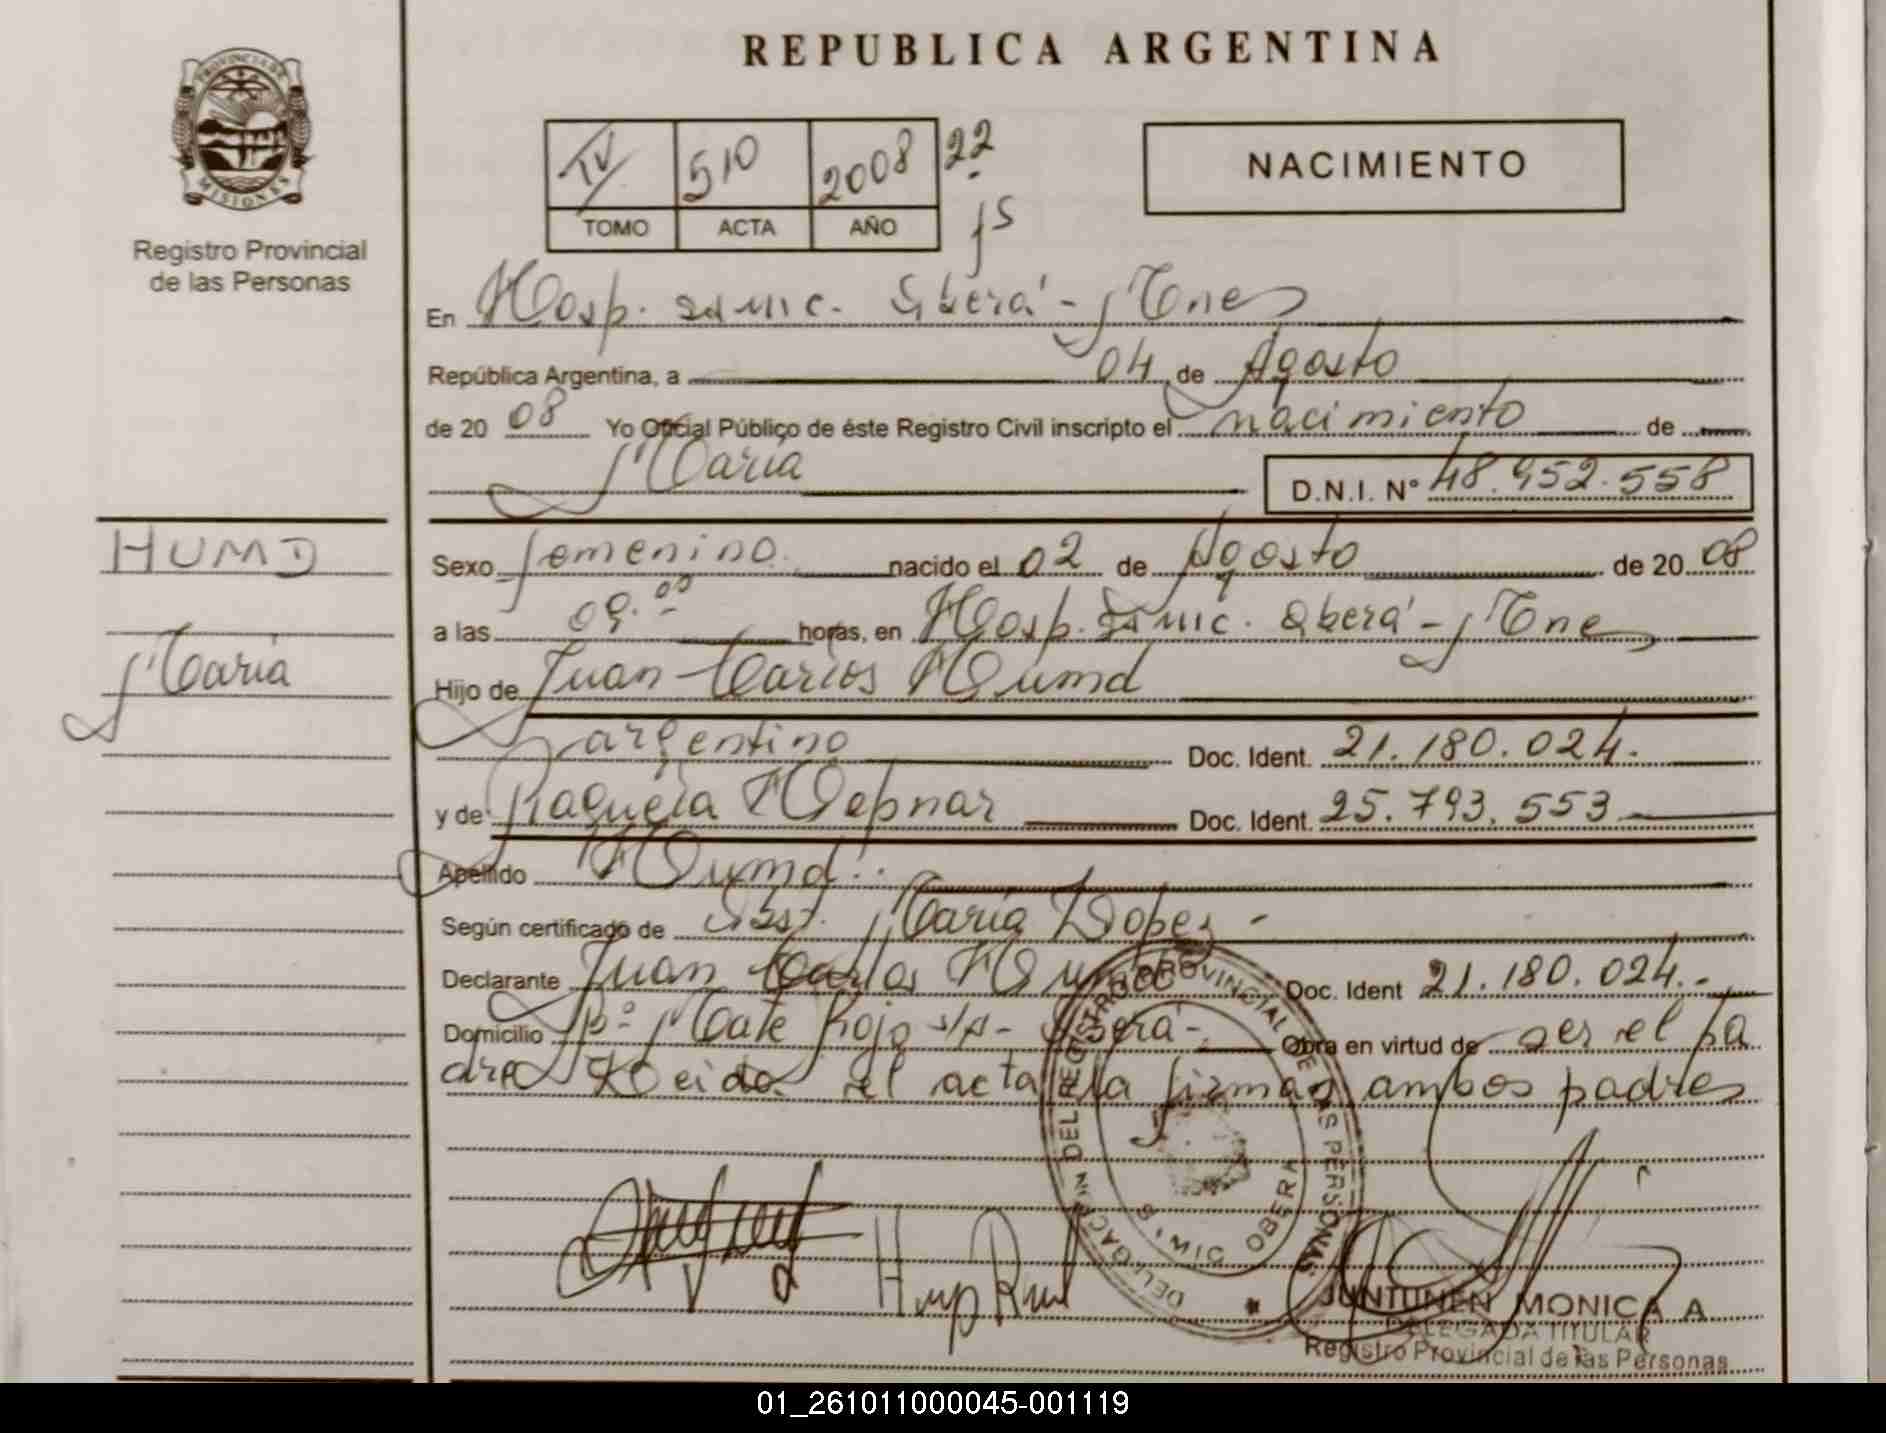 REPUBLICA ARGENTINA
PROVINCIA DE MISIONES
Registro Provincial
de las Personas
IV 510 2008 22
TOMO ACTA AÑO
NACIMIENTO
En Hosp. Samic. Oberá - Mnes
República Argentina, a 04 de Agosto
de 2008 Yo Oficial Público de éste Registro Civil inscripto el nacimiento de
María
D.N.I. N° 48.952.558
HUMD
María
Sexo femenino nacido el 02 de Agosto de 2008
a las 09.00 horas, en Hosp. Samic. Oberá - Mnes
Hijo de Juan Carlos Humd
argentino Doc. Ident. 21.180.024.
y de Raquela Hepnar Doc. Ident. 25.793.553
Apellido Humd
Según certificado de Obst. María Lopez -
Declarante Juan Carlos Humd Doc. Ident 21.180.024.-
Domicilio Bº Mate Rojo s/n - Oberá - Obra en virtud de ser el pa
dre Leida el acta la firman ambos padres
DELEGACION DEL REGISTRO PROVINCIAL DE LAS PERSONAS
OBERA
JUNTUNEN MONICA A
DELEGADA TITULAR
Registro Provincial de las Personas
01_261011000045-001119